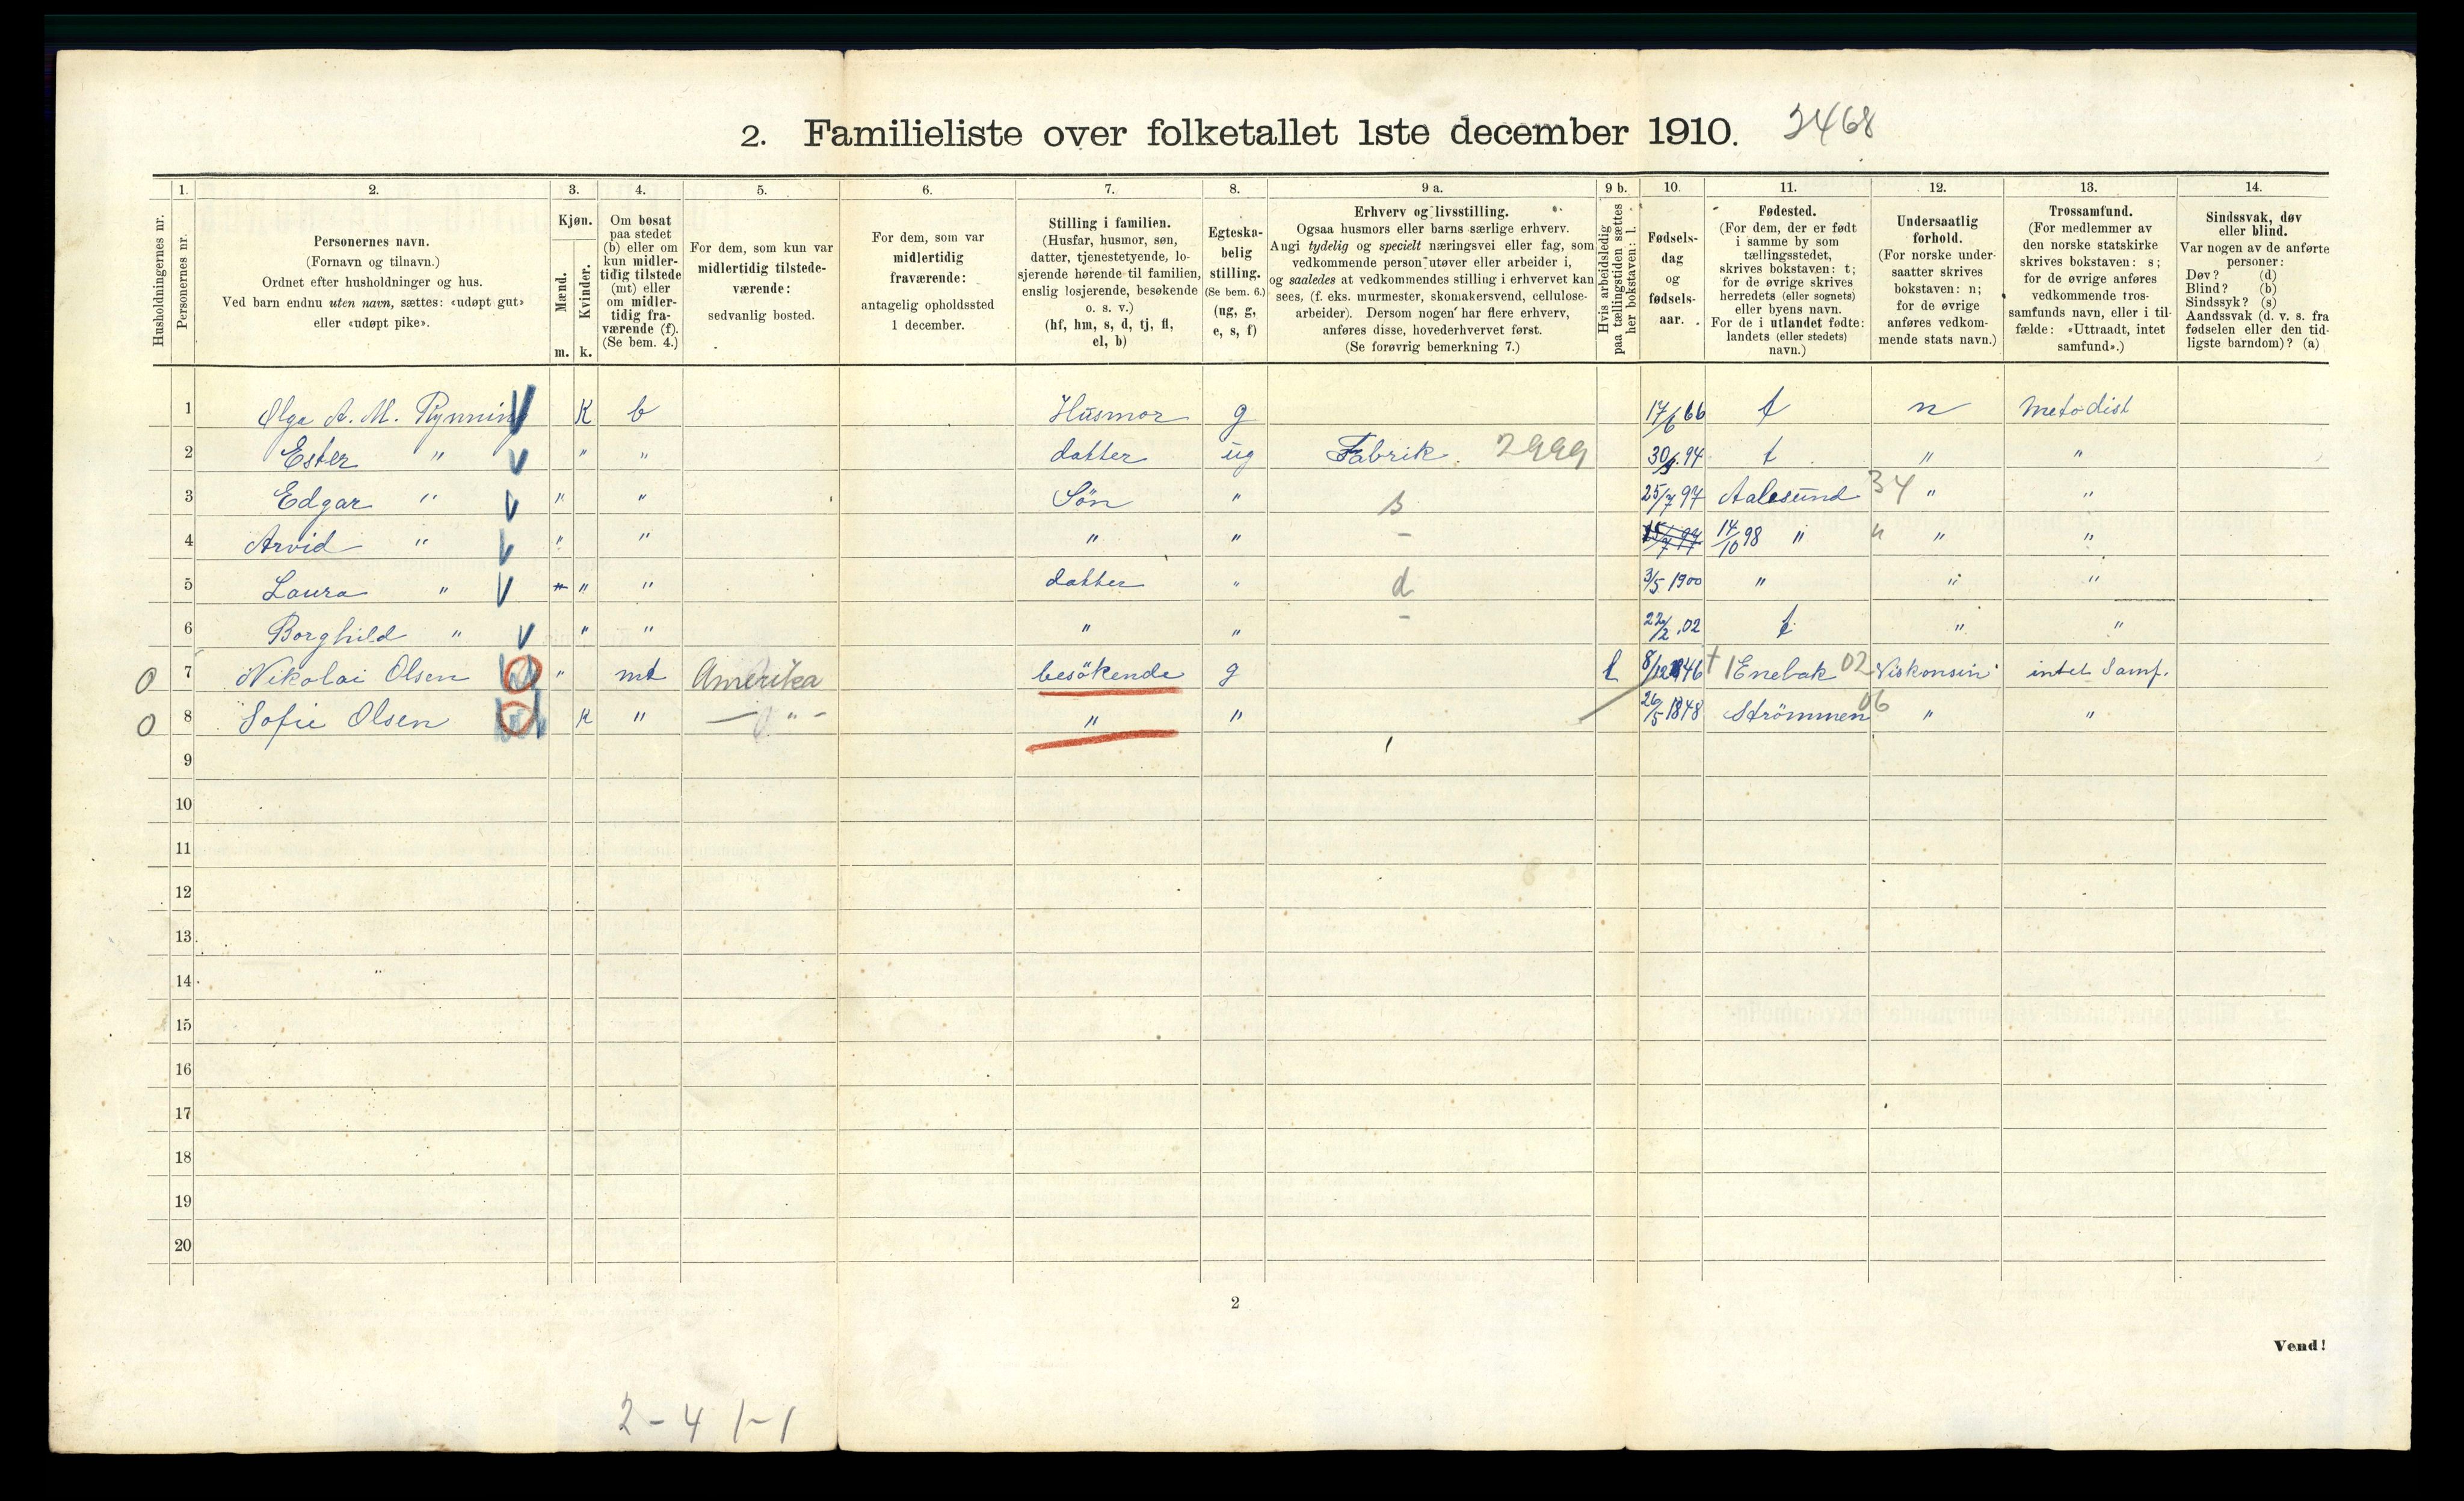 2. Familieliste over folketallet 1ste december 1910. 3468
Husholdningernes nr.
1. 2. 3. 4. 5. 6. 7. 8. 9 a. 9 b. 10. 11. 12. 13. 14.
Personernes nr.
Personernes navn.
(Fornavn og tilnavn.)
Ordnet efter husholdninger og hus.
Ved barn endnu uten navn, sættes: «udøpt gut»
eller «udøpt pike».
Kjøn.
Mænd.
m.
Kvinder.
k.
Om bosat
paa stedet
(b) eller om
kun midler-
tidig tilstede
(mt) eller
om midler-
tidig fra-
værende (f).
(Se bem. 4.)
For dem, som kun var
midlertidig tilstede-
værende:
sedvanlig bosted.
For dem, som var
midlertidig
fraværende:
antagelig opholdssted
1 december.
Stilling i familien.
(Husfar, husmor, søn,
datter, tjenestetyende, lo-
sjerende hørende til familien,
enslig losjerende, besøkende
o. s. v.)
(hf, hm, s, d, tj, fl,
el, b)
Egteska-
belig
stilling.
(Se bem. 6.)
(ug, g,
e, s, f)
Erhverv og livsstilling.
Ogsaa husmors eller barns særlige erhverv.
Angi tydelig og specielt næringsvei eller fag, som
vedkommende person utøver eller arbeider i,
og saaledes at vedkommendes stilling i erhvervet kan
sees, (f. eks. murmester, skomakersvend, cellulose-
arbeider). Dersom nogen har flere erhverv,
anføres disse, hovederhvervet først.
(Se forøvrig bemerkning 7.)
Hvis arbeidsledig
paa tællingstiden sættes
her bokstaven: l.
Fødsels-
dag
og
fødsels-
aar.
Fødested.
(For dem, der er født
i samme by som
tællingsstedet,
skrives bokstaven: t;
for de øvrige skrives
herredets (eller sognets)
eller byens navn.
For de i utlandet fødte:
landets (eller stedets)
navn.)
Undersaatlig
forhold.
(For norske under-
saatter skrives
bokstaven: n;
for de øvrige
anføres vedkom-
mende stats navn.)
Trossamfund.
(For medlemmer av
den norske statskirke
skrives bokstaven: s;
for de øvrige anføres
vedkommende tros-
samfunds navn, eller i til-
fælde: «Uttraadt, intet
samfund».)
Sindssvak, døv
eller blind.
Var nogen av de anførte
personer:
Døv? (d)
Blind? (b)
Sindssyk? (s)
Aandssvak (d. v. s. fra
fødselen eller den tid-
ligste barndom)? (a)
1 Olga A. M. Rynning K b Husmor g 17/6 66 t n Metodist
2 Ester " " " datter ug Fabrik 2999 30/ 94 t " "
3 Edgar " " " Sön " s 25/7 97 Aalesund 34 " "
4 Arvid " " " " " – 15/7 97 14/10 98 " " " "
5 Laura " " " " datter " d 3/5 1900 " " "
6 Borghild " " " " " – 22/2 .02 t " "
0 7 Nikolai Olsen " mt Amerika besökende g l 8/12 1846 † Enebak 02 Viskonsin intet Samf.
0 8 Sofie Olsen K " — " – " " 26/5 1848 Strömmen 06 " "
9
10
11
12
13
14
15
16
17
18
19
20
2
Vend!
2 – 4 1 – 1